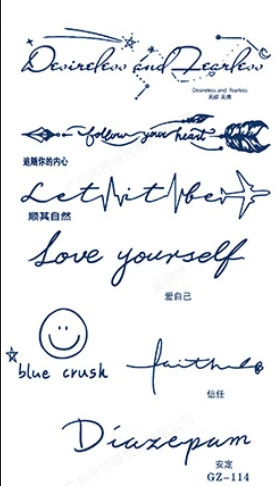 Desireless and Fearless
Desireless and fearless
无欲 无畏
follow your heart
追随你的内心
Let it be
顺其自然
Love yourself
爱自己
blue crush
faith
信任
Diazepam
安定
GZ-114